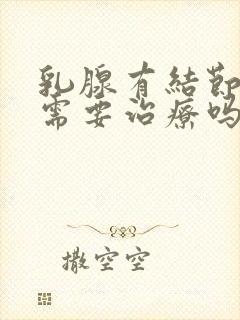 乳腺有結節
需要治療嗎
撒空空